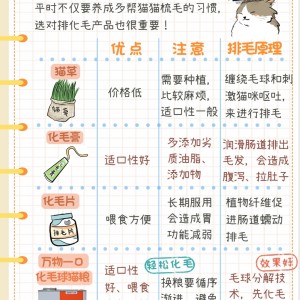 平时不仅要养成多帮猫猫梳毛的习惯,
选对排化毛产品也很重要!
优点
注意
排毛原理
猫草
价格低
需要种植,
比较麻烦,
适口性一般
缠绕毛球和刺
激猫咪呕吐,
来进行排毛
化毛膏
适口性好
多添加劣
质油脂、
添加物
润滑肠道排出
毛发,会造成
腹泻、拉肚子
化毛片
化毛片
喂食方便
长期服用
会造成胃
功能减弱
植物纤维促
进肠道蠕动
排毛
万物一口
化毛球猫粮
适口性
好、喂食
轻松化毛
换粮要循序
渐进,避免
效果好
毛球分解技
术,先化毛